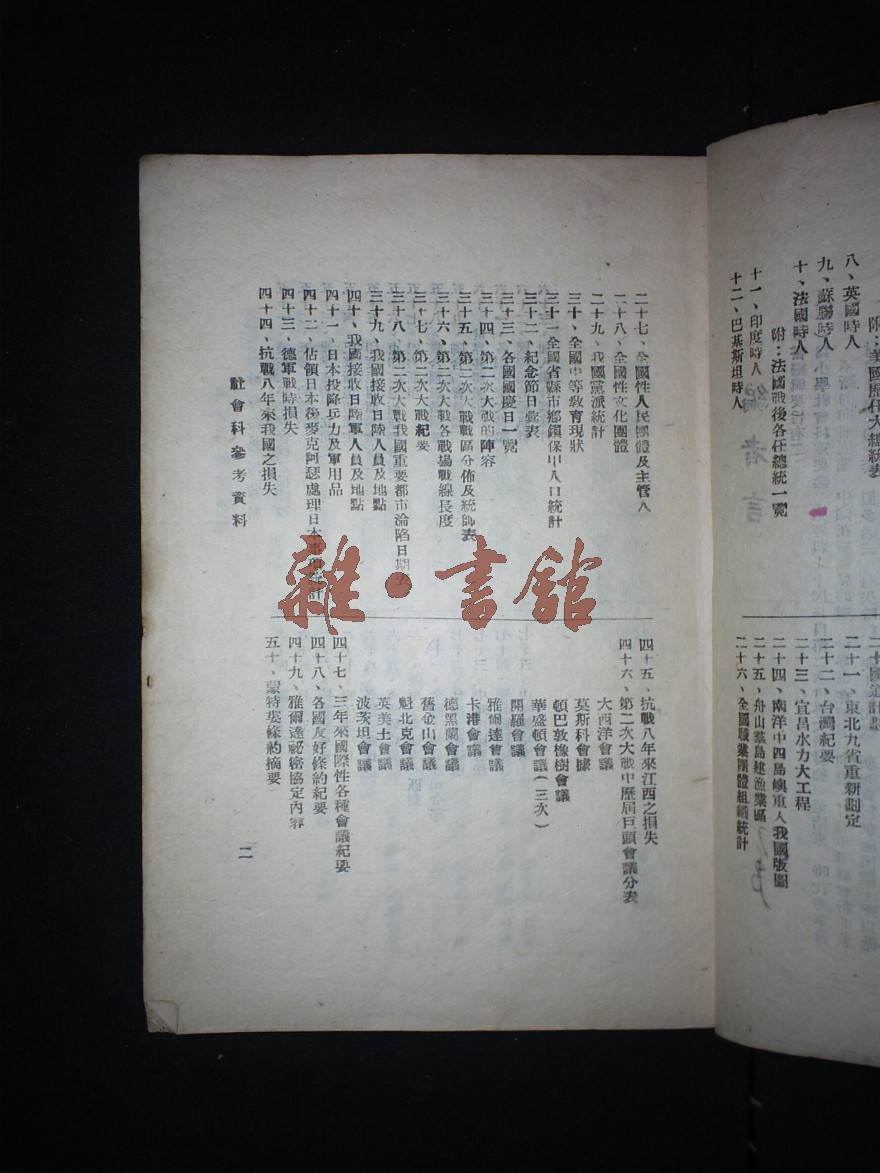 附：美國歷任大總統表
八、英國時人
九、蘇聯時人
十、法國時人
附：法國戰後各任總統一覽
十一、印度時人
十二、巴基斯坦時人
編者言
二十一、東北九省重新劃定
二十二、台灣紀要
二十三、宜昌水力大工程
二十四、南洋中四島嶼重入我國版圖
二十五、舟山羣島建漁業區
二十六、全國職業團體組織統計
二十七、全國性人民團體及主管人
二十八、全國性文化團體
二十九、我國黨派統計
三十、全國中等教育現狀
三十一全國省縣市鄉鎮保甲人口統計
三十二、紀念節日彙表
三十三、各國國慶日一覽
三十四、第二次大戰的陣容
三十五、第二次大戰戰區分佈及統帥表
三十六、第二次大戰各戰場戰線長度
三十七、第二次大戰紀要
三十八、第二次大戰我國重要都市淪陷日期表
三十九、我國接收日陸人員及地點
四十、我國接收日陸軍人員及地點
四十一、日本投降兵力及軍用品
四十二、佔領日本後麥克阿瑟處理日本事項統計
四十三、德軍戰時損失
四十四、抗戰八年來我國之損失
四十五、抗戰八年來江西之損失
四十六、第二次大戰中歷屆巨頭會議分表
大西洋會議
莫斯科會據
頓巴敦橡樹會議
華盛頓會議（三次）
開羅會議
雅爾達會議
卡港會議
德黑蘭會議
舊金山會議
魁北克會議
英美土會議
波茨坦會議
四十七、三年來國際性各種會議紀要
四十八、各國友好條約紀要
四十九、雅爾達祕密協定內容
五十、蒙特婁條約摘要
社會科參考資料
二
雜·書館